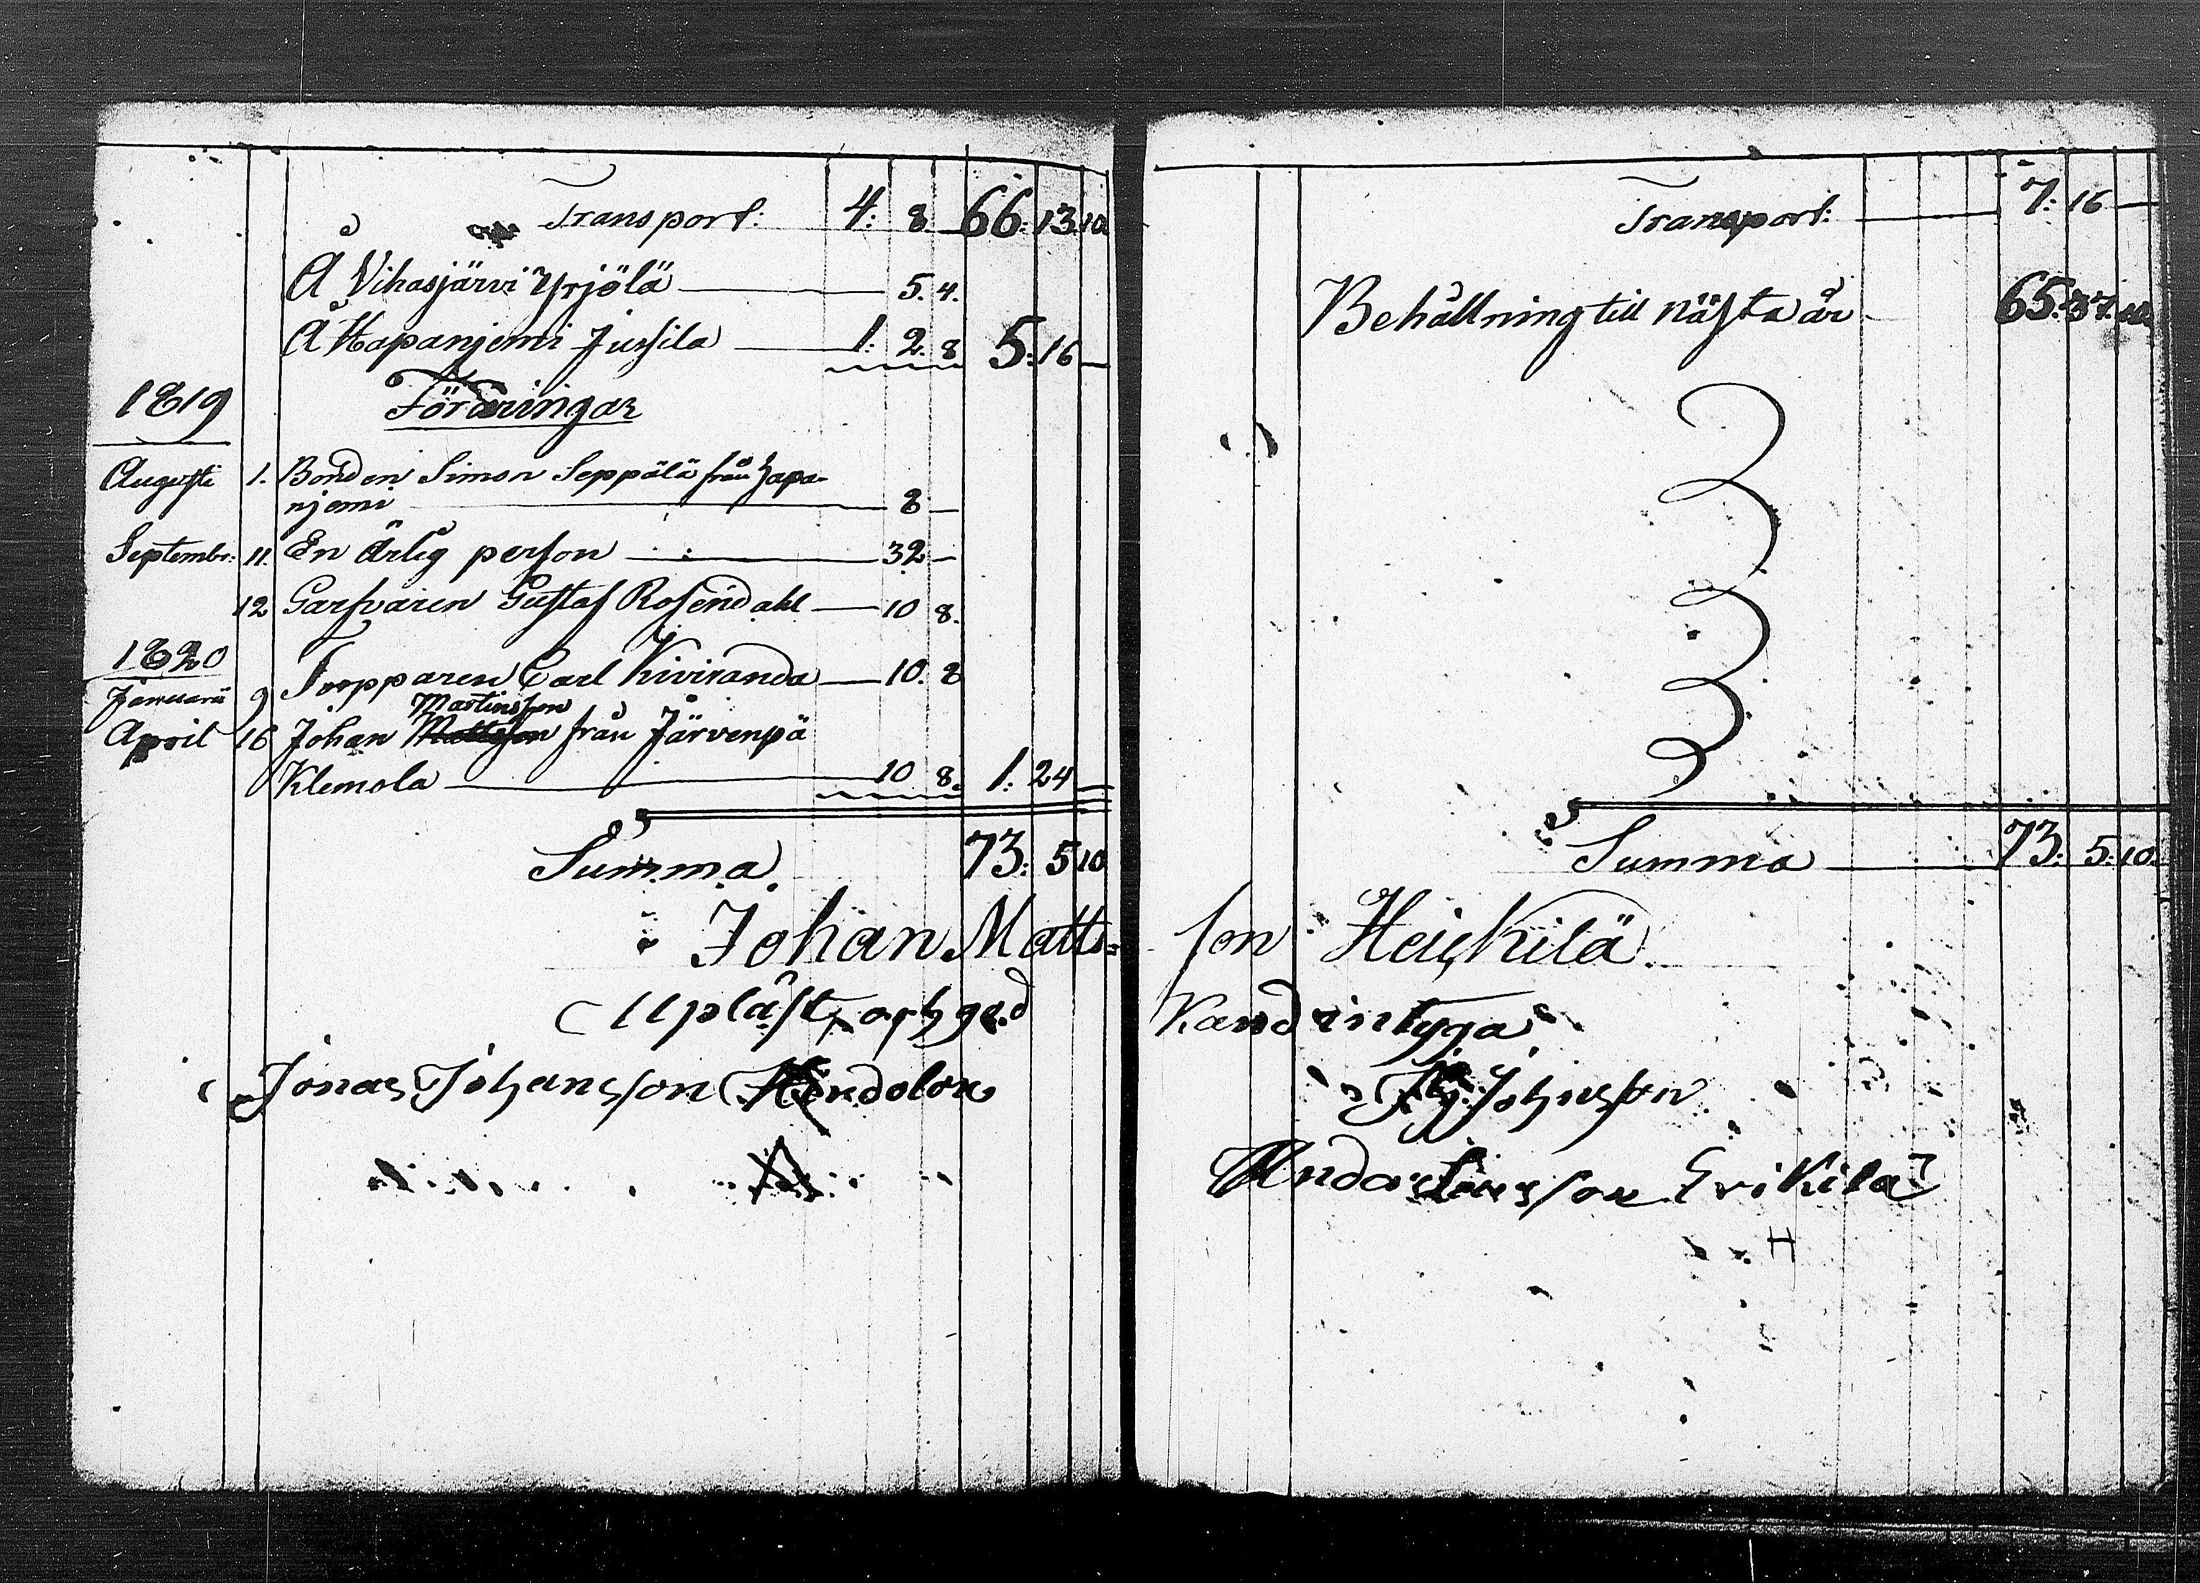 Transport: 4: 8. 66: 13. 10
Å Vihasjärvi Yrjölä 5. 4.
Å Hapanjemi Jussila 1: 2. 8 5: 16 —
1819 Föräringar
Augusti 1. Bonden Simon Seppälä från Hapa-
njemi 8 —
Septembr: 11. En ärlig person 32 —
12 Garfvaren Gustaf Rosendahl 10 8.
1820
Januarii 9 Torpparen Carl Kiviranda 10. 8
Martinsson
April 16 Johan Mattsson från Järvenpä
Klemola 10 8. 1: 24 —
Summa 73: 5 10
Johan Matts=
Upläst och god
Jonas Johansson
Transport: 7: 16 —
Behållning till nästa år 65: 37. 10.
Summa 73: 5: 10.
son Heickilä
Känd intyga
Johnsson
Erikila
H